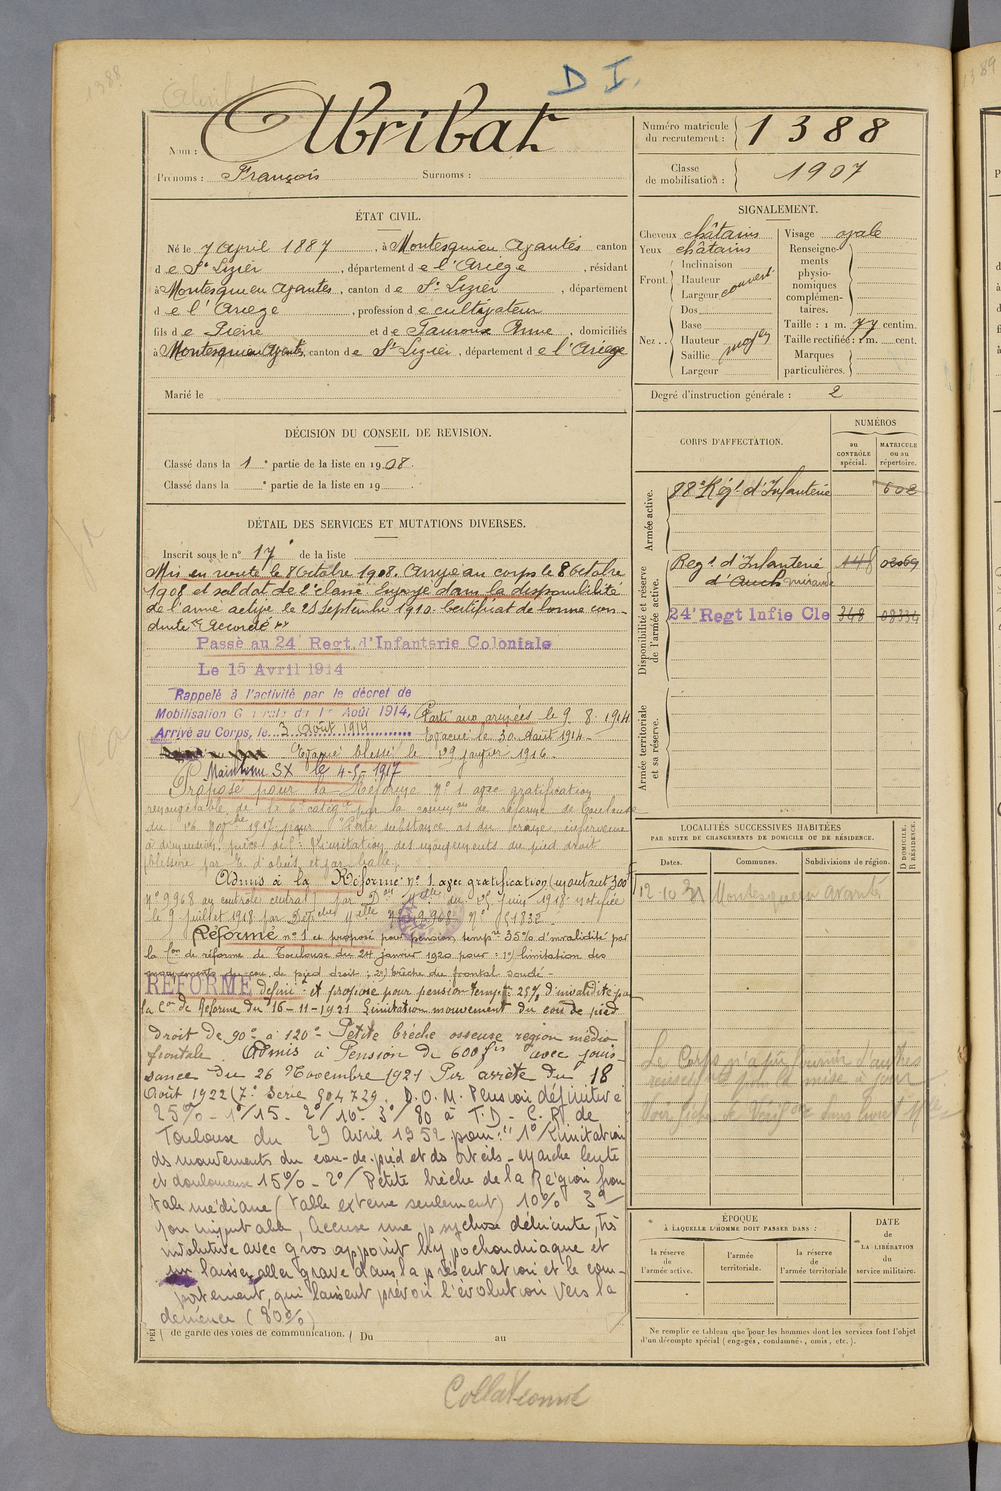 1388
D I.
Nom : Abribat
Prénoms : François Surnoms :
Numéro matricule du recrutement : 1388
Classe de mobilisation : 1907
ÉTAT CIVIL.
Né le 7 Avril 1887, à Montesquieu Avantès canton
de St Lizier, département de l'Ariège, résidant
à Montesquieu Avantès, canton de St Lizier, département
de l'Ariège, profession de cultivateur
fils de Pierre et de Tauroux Anne, domiciliés
à Montesquieu Avantès, canton de St Lizier, département de l'Ariège
Marié le
SIGNALEMENT.
Cheveux châtains
Yeux châtains
Front. Inclinaison
Hauteur
Largeur couvert
Nez. Dos
Base
Hauteur moyen
Saillie
Largeur
Visage ovale
Renseignements physionomiques complémentaires.
Taille : 1 m. 77 centim.
Taille rectifiée : 1 m. cent.
Marques particulières.
Degré d'instruction générale : 2
DÉCISION DU CONSEIL DE REVISION.
Classé dans la 1e partie de la liste en 1908.
Classé dans la e partie de la liste en 19
DÉTAIL DES SERVICES ET MUTATIONS DIVERSES.
Inscrit sous le n° 17 de la liste
Mis en route le 8 Octobre 1908. Arrivé au corps le 8 Octobre
1908 et soldat de 2e classe. Envoyé dans la disponibilité
de l'armée active le 25 Septembre 1910. Certificat de bonne con-
duite "Accordé"
Passé au 24e Regt. d'Infanterie Coloniale
Le 15 Avril 1914
Rappelé à l'activité par le décret de
Mobilisation Générale du 1er Août 1914, Parti aux armées le 9. 8. 1914
Arrivé au Corps, le 3 Août 1914 Evacué le 30 Août 1914 -
Evacué blessé le 29 janvier 1916.
Maintenu SX le 4-5-1917
Proposé pour la Réforme n° 1 avec gratification
renouvelable de la 6e catégie par la comon de réforme de Toulouse
du 26 Novbre 1917 pour Perte substance os du crâne
Limitation des mouvements du pied droit
blessure par E. d'obus, et par balle.
Admis à la Réforme n° 1 avec gratification (montant 300f
n° 9968 au contrôle central) par Don Mlle du 25 Juin 1918 notifiée
le 9 juillet 1918
Réformé n° 1 et proposé pour pension tempre 35% d'invalidité par
la Con de réforme de Toulouse du 24 janvier 1920 pour : 1°) limitation des
mouvements du cou de pied droit ; 2°) brêche du frontal soudé -
RÉFORMÉ définif et proposé pour pension tempre 25% d'invalidité par
la Con de Reforme du 16-11-1921 Limitation mouvement du cou de pied
droit de 90° à 120° - Petite brêche osseuse région médio
frontale. Admis à Pension de 600 frs avec jouis-
sance du 26 Novembre 1921 Par arrêté du 18
Août 1922 (7e Série 904729. D.O.M. Pension définitive
25% - 1°/15 - 2°/10 - 3°/80 à T.D - C.R de
Toulouse du 29 Avril 1952 pour : 1°/ Limitation
des mouvements du cou-de-pied et des orteils - marche lente
et douloureuse 15% - 2°/ Petite brèche de la Région fron
tale médiane (table externe seulement) 10% 3°/
non imputable, Accuse une psychose délirante, très
involutive avec gros appoint hypochondriaque et
un laisser aller grave dans la présentation et le com-
portement, qui laissent prévoir l'évolution vers la
démence (80%)
de garde des voies de communication. ( Du au
CORPS D'AFFECTATION.
NUMÉROS
au CONTRÔLE spécial.
MATRICULE ou au répertoire.
Armée active.
88e Régt d'Infanterie 602
Disponibilité et réserve de l'armée active.
Regt d'Infanterie 148
d'Auch mirande
24e Regt Infie Cle 348 08334
Armée territoriale et sa réserve.
LOCALITÉS SUCCESSIVES HABITÉES
PAR SUITE DE CHANGEMENTS DE DOMICILE OU DE RÉSIDENCE.
Dates. Communes. Subdivisions de région. D DOMICILE, R RÉSIDENCE.
12-10-31 Montesquieu Avantès
Le Corps n'a pu fournir d'autres
renseignts pour la mise à jour
Voir fiche de Vérifon dans livret Mle
ÉPOQUE
À LAQUELLE L'HOMME DOIT PASSER DANS :
la réserve de l'armée active.
l'armée territoriale.
la réserve de l'armée territoriale
DATE de LA LIBÉRATION du service militaire.
Ne remplir ce tableau que pour les hommes dont les services font l'objet
d'un décompte spécial (engagés, condamnés, omis, etc.).
Collationné